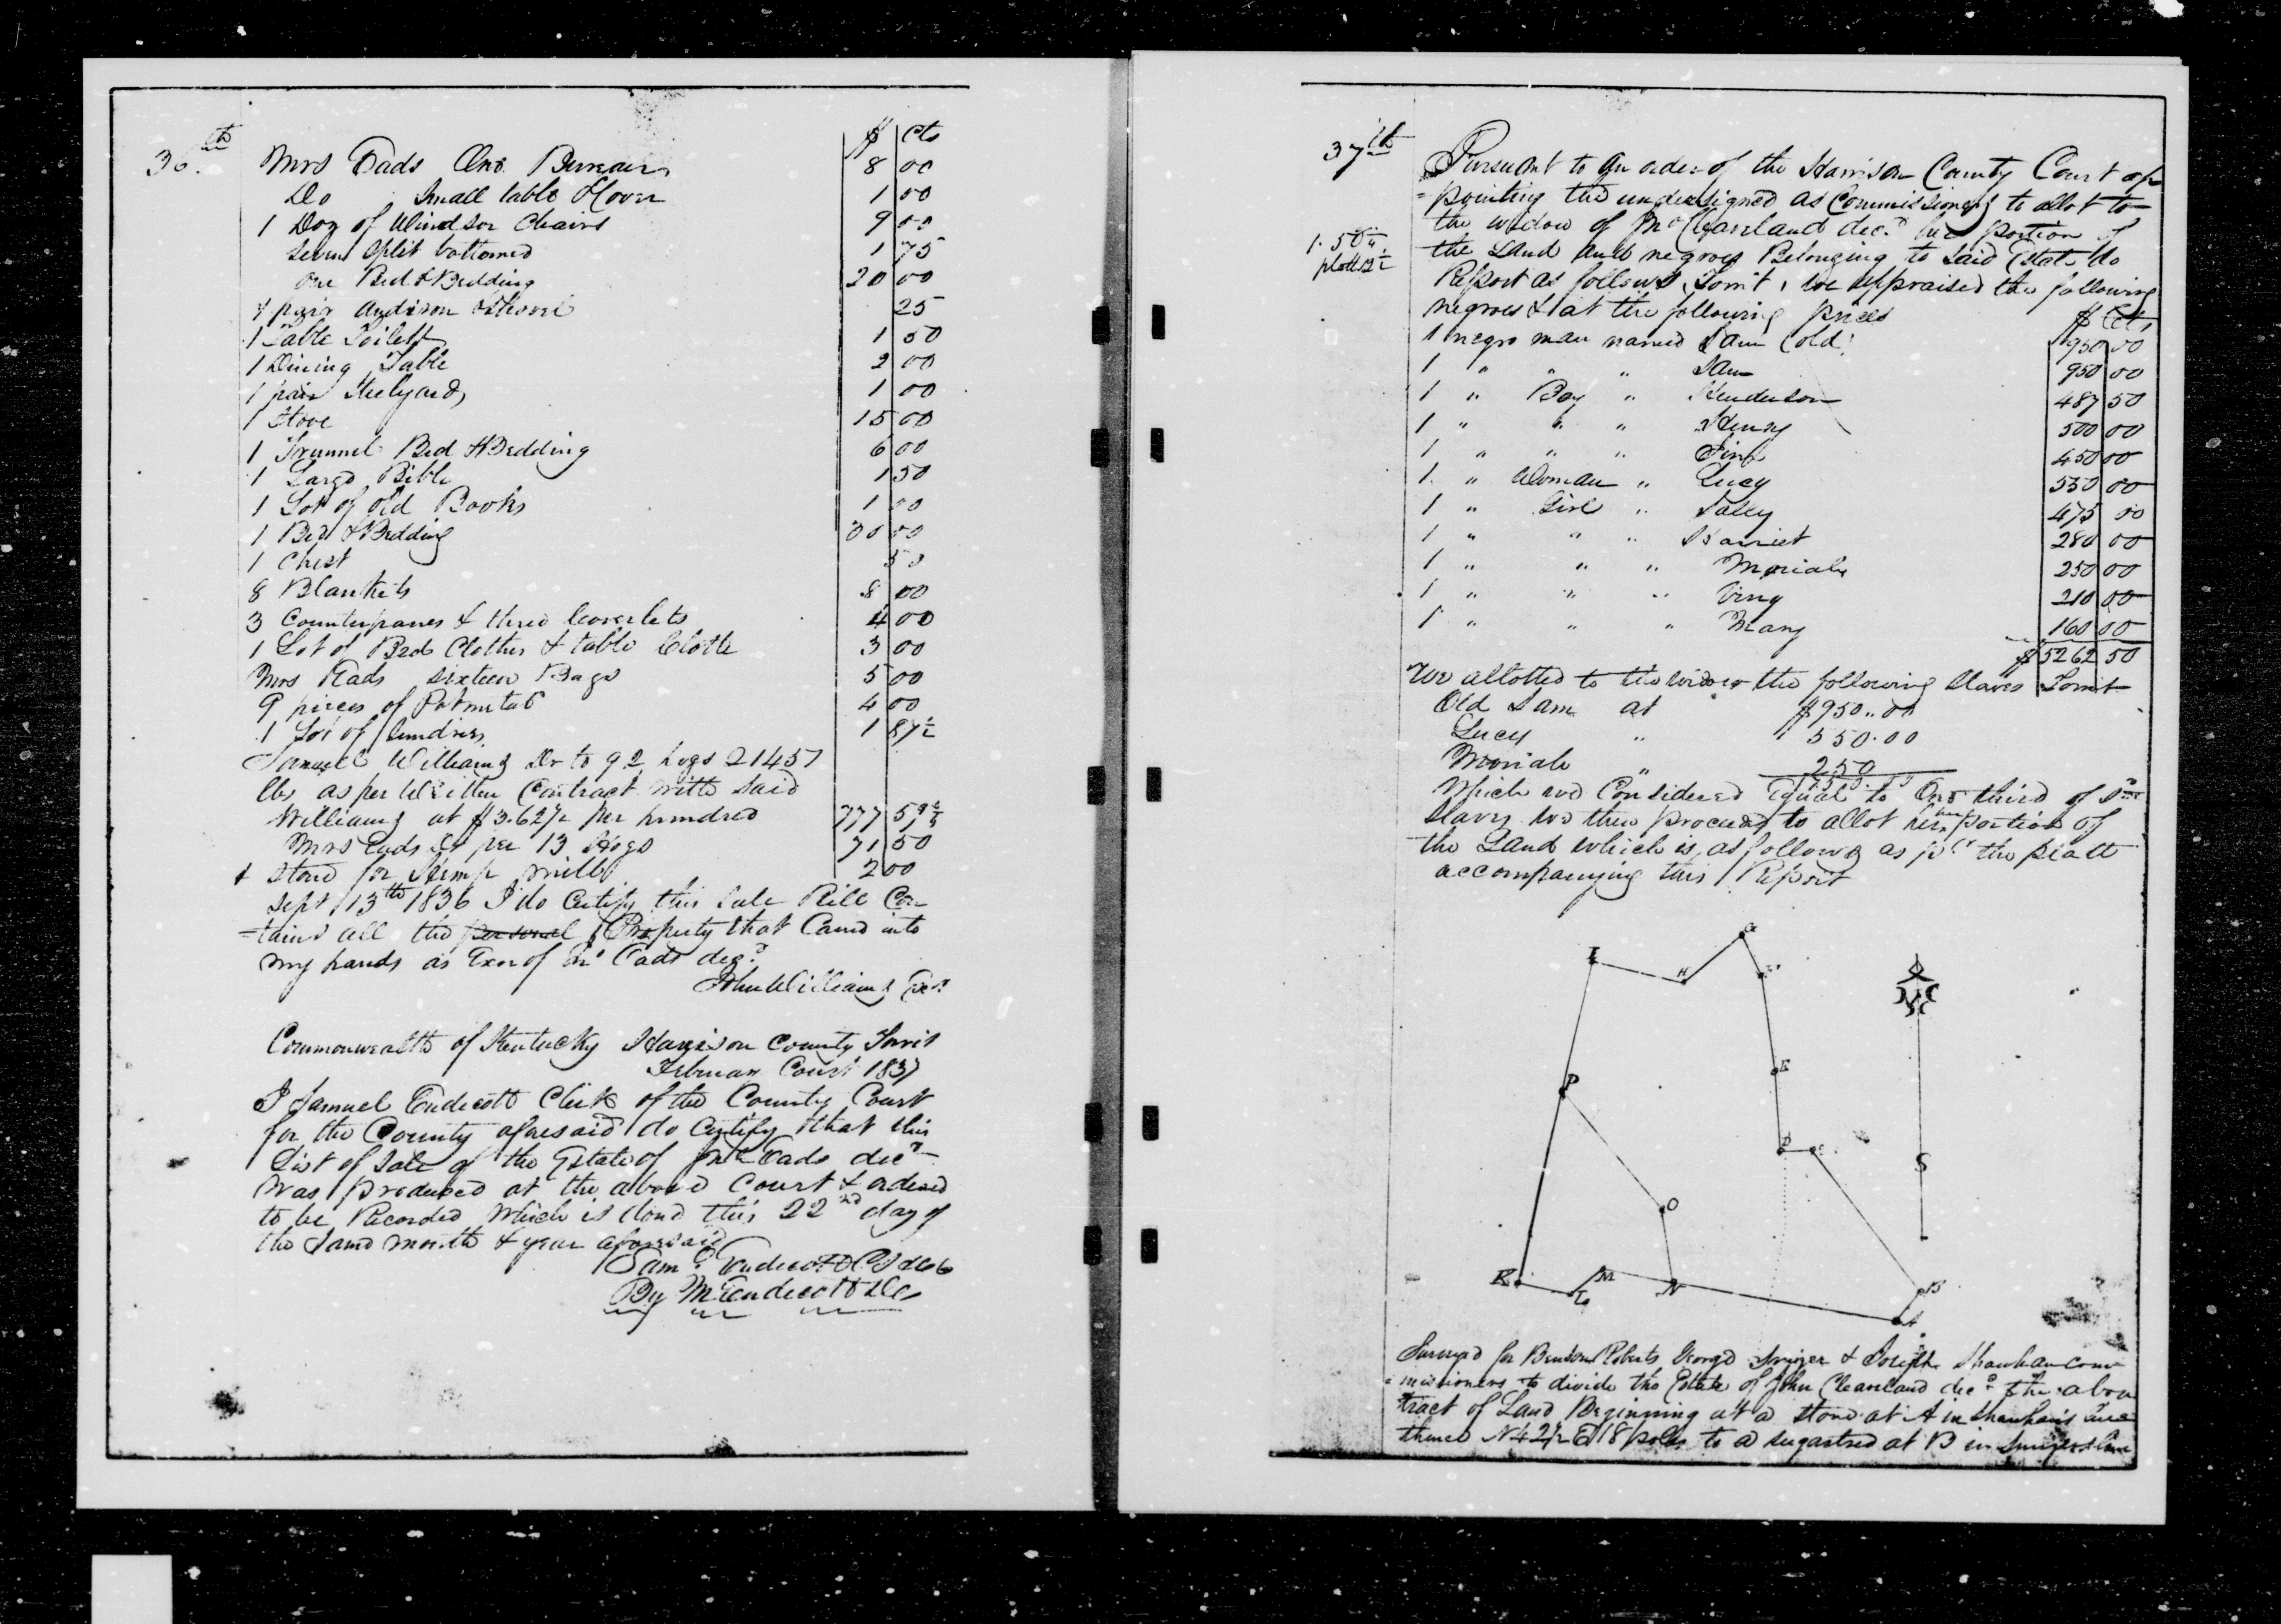 36th
$ cts
Mrs Eads One Bureau 8 00
Do Small table & Cover 1 00
1 Doz of Windsor Chairs 9 00
seven split bottomed 1 75
one Bed & Bedding 20 00
1 pair andiron & shovel 25
1 Table Toilett 1 50
1 Dining Table 2 00
1 pair Steelyards 1 00
1 Stove 15 00
1 Trunnel Bed & Bedding 6 00
1 Large Bible 1 50
1 Lot of old Books 1 00
1 Bed & Bedding 00
1 Chest 50
8 Blankets 8 00
3 Counterpanes & three Coverlets 4 00
1 Lot of Bed Clothes & table Cloth 3 00
Mrs Eads sixteen Bags 5 00
9 pieces of 4 00
1 Lot of sundries 1 87½
Samuel Williams Dr to 92 hogs 21457
lbs as per Written Contract with said
Williams at $3.62½ per hundred 777 59
Mrs Eads Dr per 13 Hogs 71 50
1 stone for Hemp mill 2 00
Sept 13th 1836 I do Certify this Sale Bill Con
=tains all the personal Property that Came into
my hands as Exor of Jno Eads decd
John Williams Exr
Commonwealth of Kentucky Harrison County Towit
February Court 1837
I Samuel Endicott Clerk of the County Court
for the County aforesaid do Certify that this
List of Sale of the Estate of Jno Eads decd
was produced at the above Court & ordered
to be Recorded which is done this 22nd day of
the same month & year aforesaid
Saml Endicott
By M Endicott DC
37th
Pursuant to an order of the Harrison County Court ap
=pointing the undersigned as Commissioners to allot to
the widow of Jno Cleaveland decd her portion of
1.50
the Land and negroes Belonging to said Estate do
platt
Report as follows Towit, we appraised the following
negroes & at the following prices $ Cts
1 negro man named Sam (old) 950 00
1 " " " Sam 950 00
1 " Boy " Henderson 487 50
1 " " " Henry 500 00
1 " " " 450 00
1 " Woman " Lucy 550 00
1 " Girl " 475 00
1 " " " Harriet 280 00
1 " " " Moriah 250 00
1 " " " 210 00
1 " " " Mary 160 00
$5262 50
We allotted to the widow the following slaves Towit
Old Sam at $950.00
Lucy " 550.00
Moriah " 250
Which we Considered Equal to One third of sd
slaves we then proceeded to allot her portion of
the Land which is as follows as pr the platt
accompanying this Report
G
I
H
F
E
P
D
C
S
O
K
L
M
N
B
A
Surveyed for Roberts George & Joseph Shawhan com
=missioners to divide the Estate of John Cleaveland decd the above
tract of Land Beginning at a stone at A in Shawhan's line
thence N42½E 18 poles to a sugartree at B in line